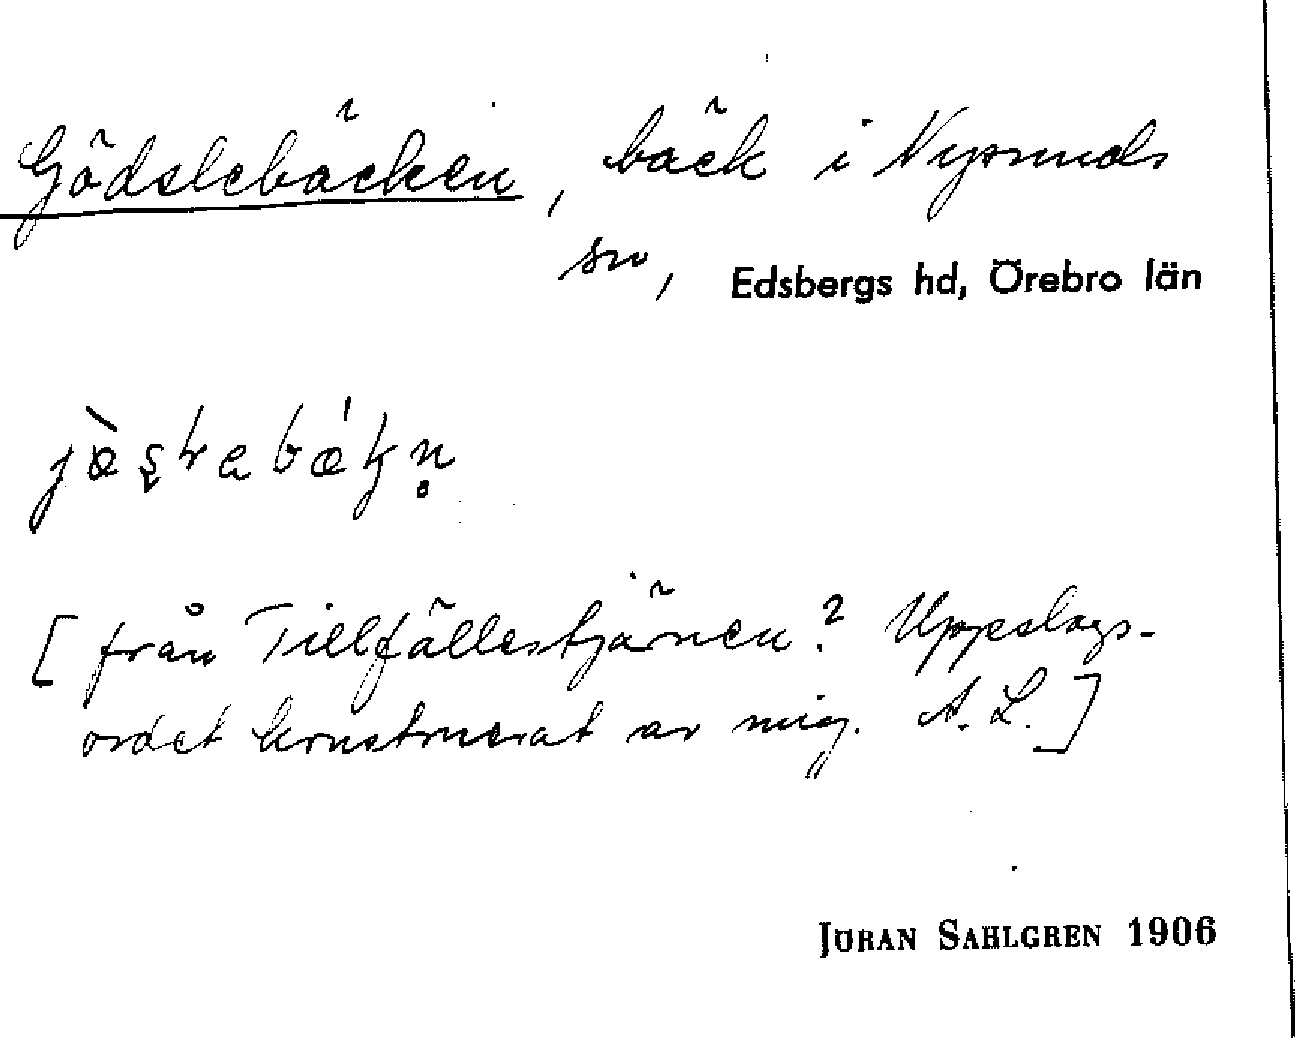 Gödslebäcken, bäck i Nysunds
sn, Edsbergs hd, Örebro län
[från Tillfällestjärnen? Uppslags-
ordet konstruerat av mig. A. L.]
JÖRAN SAHLGREN 1906